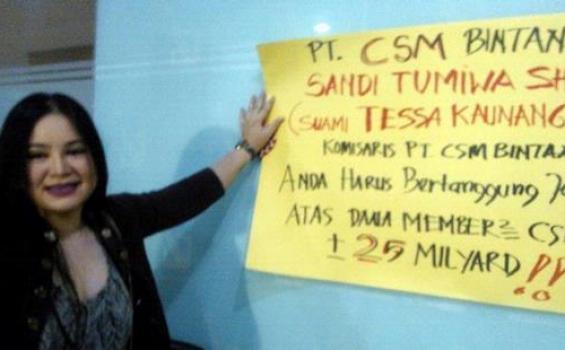 PT. CSM BINTAN
SANDI TUMIWA SH
(SUAMI TESSA KAUNANG
KOMISARIS PT CSM BINTAN
ANDA HARUS Bertanggung
ATAS DANA MEMBER² CSM
± 25 MILYARD !!